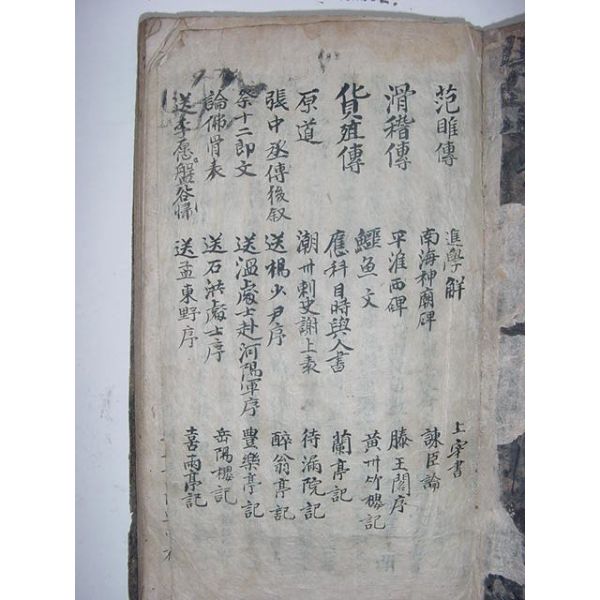 范雎傳
滑稽傳
貨殖傳
原道
張中丞傳後叙
祭十二郎文
論佛骨表
送李愿盤谷歸
進學解
南海神廟碑
平淮西碑
鱷魚文
應科目時與人書
潮州刺史謝上表
送楊少尹序
送溫處士赴河陽軍序
送石洪處士序
送孟東野序
上宰書
諫臣論
滕王閣序
黃州竹樓記
蘭亭記
待漏院記
醉翁亭記
豊樂亭記
岳陽樓記
喜雨亭記